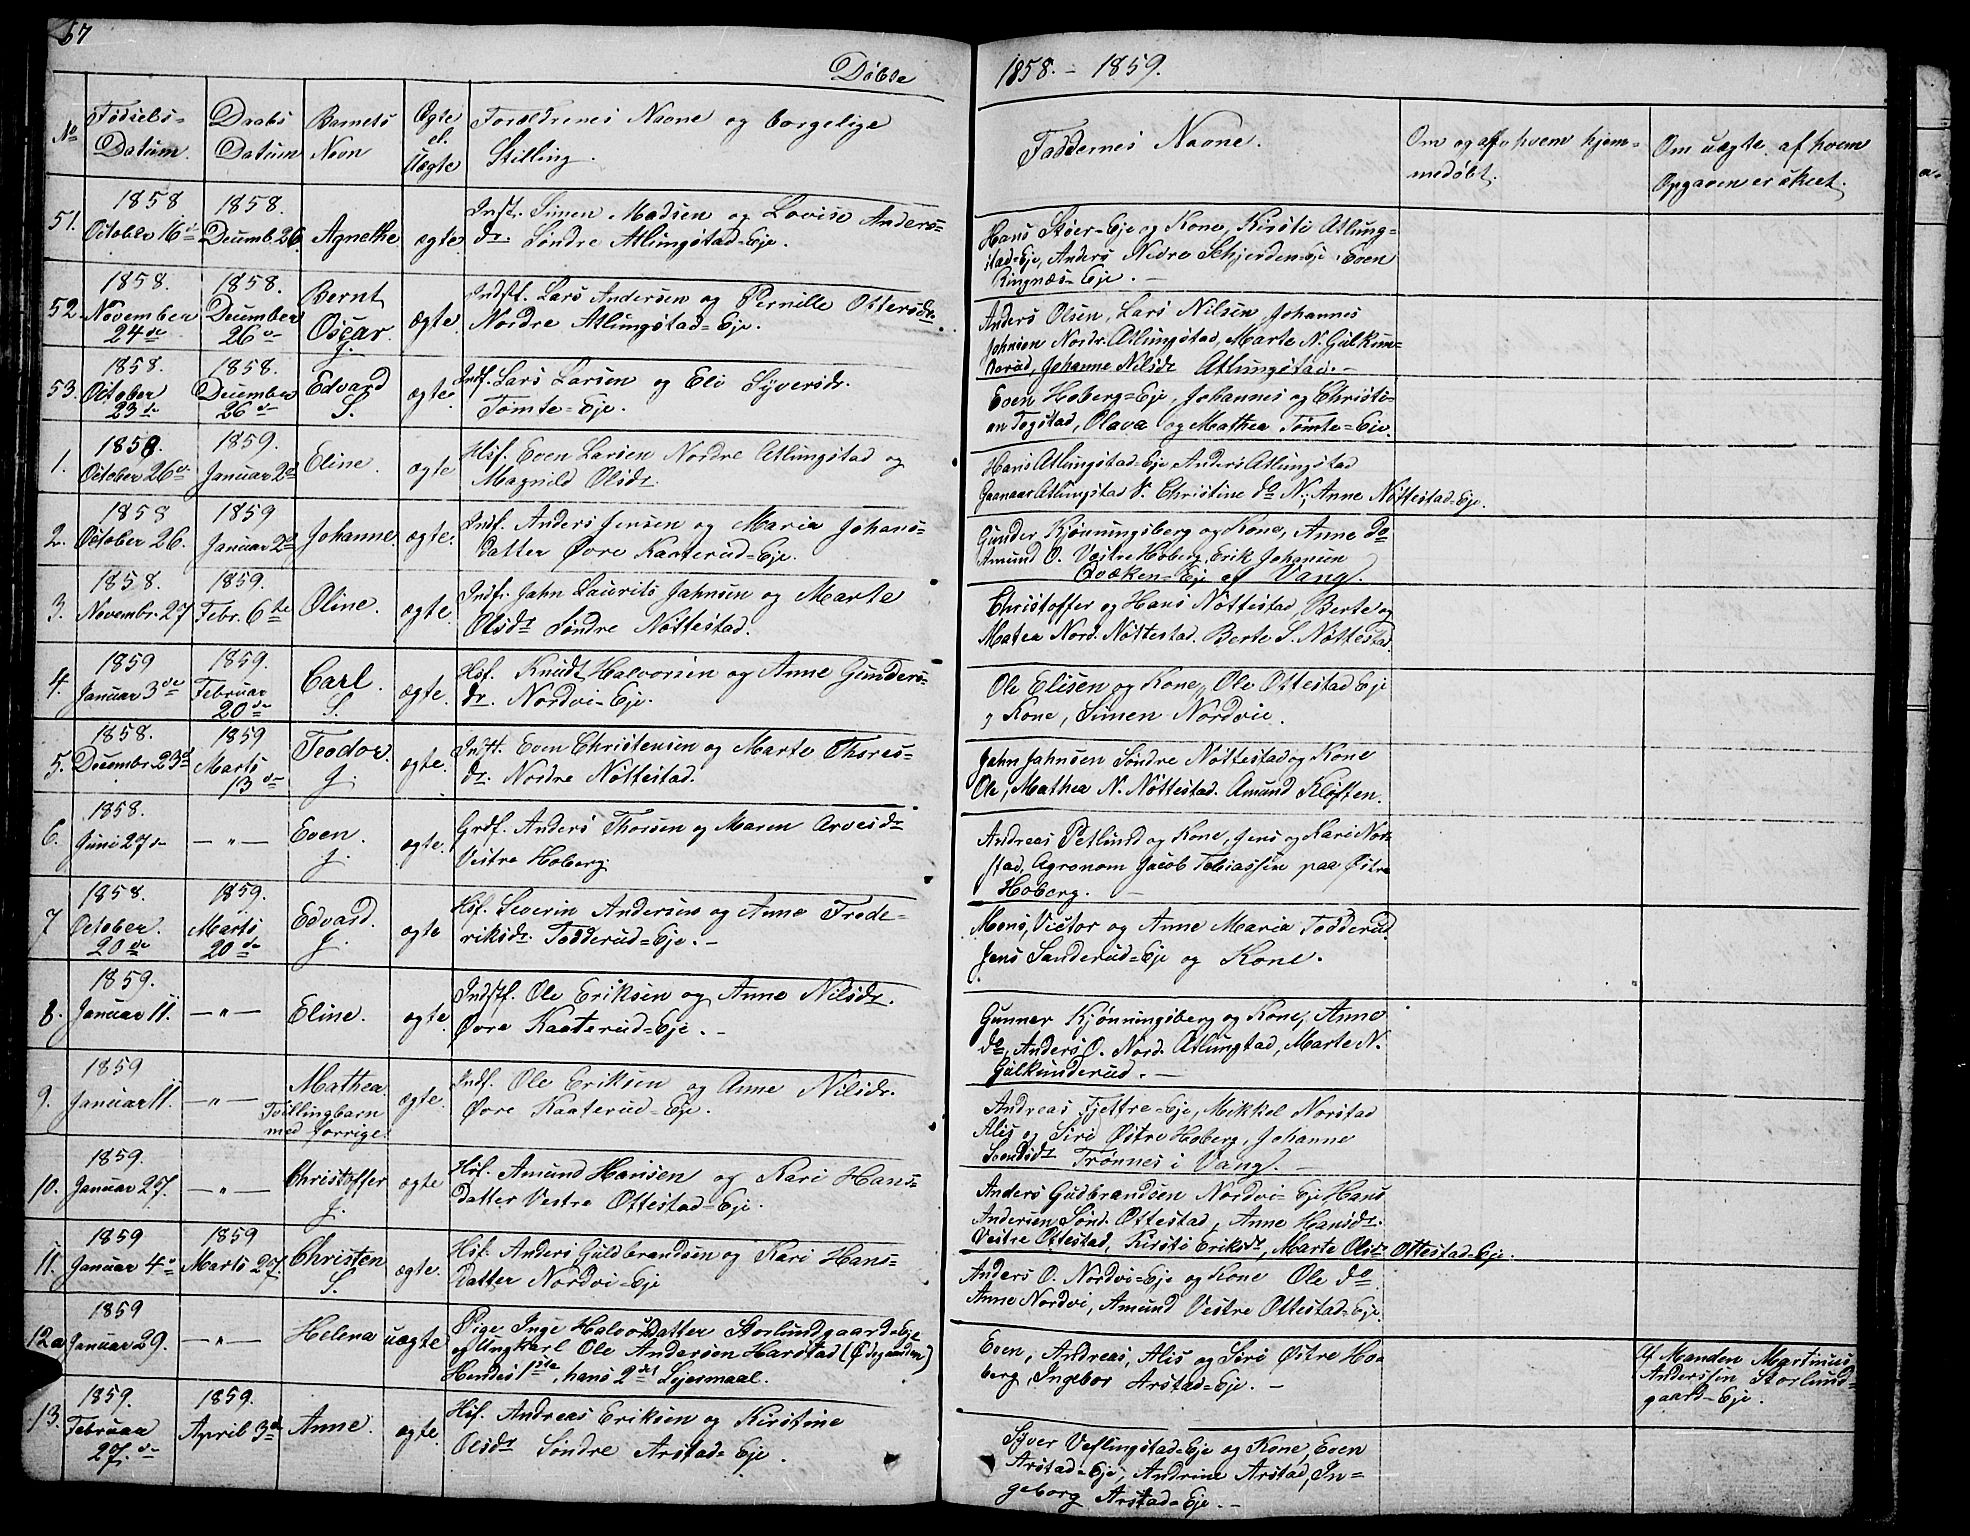 57
Döbte
1858. - 1859.
No
Födsels-
Datum.
Daabs
Datum
Barnets
Navn
Ægte
el.
Uægte
Forældrenes Navne og borgelige
Stilling.
Faddernes Navne.
Om og af hvem hjem-
medöbt.
Om uægte, af hvem
Opgaven er skeet.
51.
1858
October 16de
1858.
Decemb. 26
Agnethe
ægte
Inst. Simen Madsen og Lovise Anders-
dr. Söndre Atlungstad-Eje.
Hans Stöer-Eje og Kone, Kirsti Atlung-
stad-Eje, Anders Nedre Schjerden-Eje Even
Ringnæs-Eje. -
52.
1858.
November
24de
1858.
December
26de
Bernt
Oscar
J.
ægte.
Indst. Lars Andersen og Pernille Ottersdr.
Nordre Atlungstad-Eje.
Anders Olsen, Lars Nilsen, Johannes
Johnsen Nordr. Atlungstad, Marte N. Gulkun-
derud, Johanne Nilsdr Atlungstad. -
53.
1858.
October
23de
1858.
December
26de
Edvard
S.
ægte.
Indf. Lars Larsen og Eli Syversdr.
Tömte-Eje.
Even Hoberg-Eje, Johannes og Christi-
an Togstad, Olava og Mathea Tömte-Eje.
1.
1858
October 26de
1859.
Januar 2d
Eline.
ægte
Hsf. Even Larsen Nordre Atlungstad og
Magnild Olsdr.
Hans Atlungstad-Eje Anders Atlungstad
Gunnar Atlungstad N. Christine do N, Anne Nöttestad-Eje.
2.
1858
October 26.
1859
Januar 2d
Johanne.
ægte.
Indf. Anders Jensen og Maria Johans-
datter Övre Kaaterud-Eje.
Gunder Kjönningsberg og Kone, Anne do
Amund O. Vestre Hoberg, Erik Johansen
Qvæken-Eje af Vang.
3.
1858.
Novembr. 27
1859.
Febr. 6te
Oline.
ægte.
Indf. Jahn Laurits Jahnsen og Marte
Olsdr Söndre Nöttestad.
Christoffer og Hans Nöttestad, Berte og
Matea Nord. Nöttestad. Berte S. Nöttestad.
4.
1859
Januar 3de
1859.
Februar
20de
Carl.
S.
ægte.
Hsf. Knudt Halvorsen og Anne Gunders-
dr. Nordvi-Eje.
Ole Elisen og Kone, Ole Ottestad Eje
og Kone, Simen Nordvie.
5.
1858.
Decembr. 23d
1859
Marts
13de
Teodor.
J.
ægte.
Indst. Even Christensen og Marte Thores-
dr. Nordre Nöttestad.
Jahn Jahnsen Söndre Nöttestad og Kone
Ole, Mathea N. Nöttestad. Amund Klöften.
6.
1858.
Juni 27de
— " —
Even.
J.
ægte.
Grdf. Anders Thorsen og Maren Arvesdr
Vestre Hoberg.
Andreas Petlund og Kone, Jens og Kari Nor-
stad, Agronom Jacob Tobiassen paa Östre
Hoberg. -
7
1858.
October.
20de
1859.
Marts
20de
Edvard.
J.
ægte
Hsf. Severin Andersen og Anne Frede-
riksdr. Tödderud-Eje. -
Mons, Victor og Anne Maria Tödderud.
Jens Sanderud-Eje og Kone.
8.
1859.
Januar 11.
— " —
Eline.
ægte.
Indstf. Ole Eriksen og Anne Nilsdr.
Övre Kaaterud-Eje. -
Gunner Kjönningsberg og Kone, Anne
do, Anders O. Nord. Atlungtad, Marte N.
Gulkunderud. -
9.
1859
Januar 11.
— " —
Mathea
Tvillingbarn
med forrige.
ægte.
Indf. Ole Eriksen og Anne Nilsdr.
Övre Kaaterud-Eje.
Andreas Fjetre-Eje, Mikkel Norstad
Alis og Siri Östre Hoberg, Johanne
Svendsdr Trönnes i Vang. -
10.
1859.
Januar 27.
— " —
Christoffer
J.
ægte
Hsf. Amund Hansen og Kari Hans-
datter Vestre Ottestad-Eje.
Anders Gudbrandsen Nordvi-Eje Hans
Andersen Sönd. Ottestad, Anne Hansdr.
Vestre Ottestad, Kirsti Eriksdr, Marte Olsdr Ottestad-Eje.
11.
1859
Januar 4de
1859
Marts 27.
Christen
S.
ægte.
Hsf. Anders Guldbrandsen og Kari Hans-
datter Nordvi-Eje
Anders O. Nordvi-Eje og Kone Ole do
Anne Nordvi, Amund Vestre Ottestad-Eje.
12a
1859
Januar 29.
— " —
Helena
uægte
Pige Inge Halvorsdatter Storlundgaard-Eje
og Ungkarl Ole Andersen Harstad (Ödegaarden)
Hendes 1ste, hans 2det Lejermaal.
Even, Andreas, Alis og Siri Östre Ho-
berg, Ingebor Arstad-Eje. -
Af Manden Martinus
Anderssen Storlund-
gaard-Eje.
13.
1859.
Februar
27.de
1859.
April 3d
Anne.
ægte.
Hsf. Andreas Eriksen og Kirstine
Olsdr Söndre Arstad-Eje.
Syver Veflingstad-Eje og Kone, Even
Arstad-Eje, Andrine Arstad, In-
geborg Arstad-Eje. -